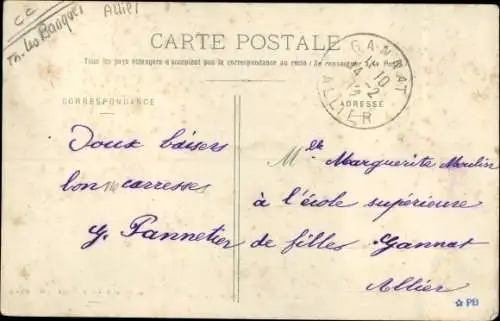 CC
Allier
CARTE POSTALE
Tous les pays étrangers n'acceptent pas la correspondance au recto (Se renseigner à la Poste)
GANNAT
10
2
ALLIER
CORRESPONDANCE
ADRESSE
Doux baisers
bonnes carresses
Y. Pannetier
Mlle Marguerite Moulin
à l'école supérieure
de filles Gannat
Allier
☆ PB